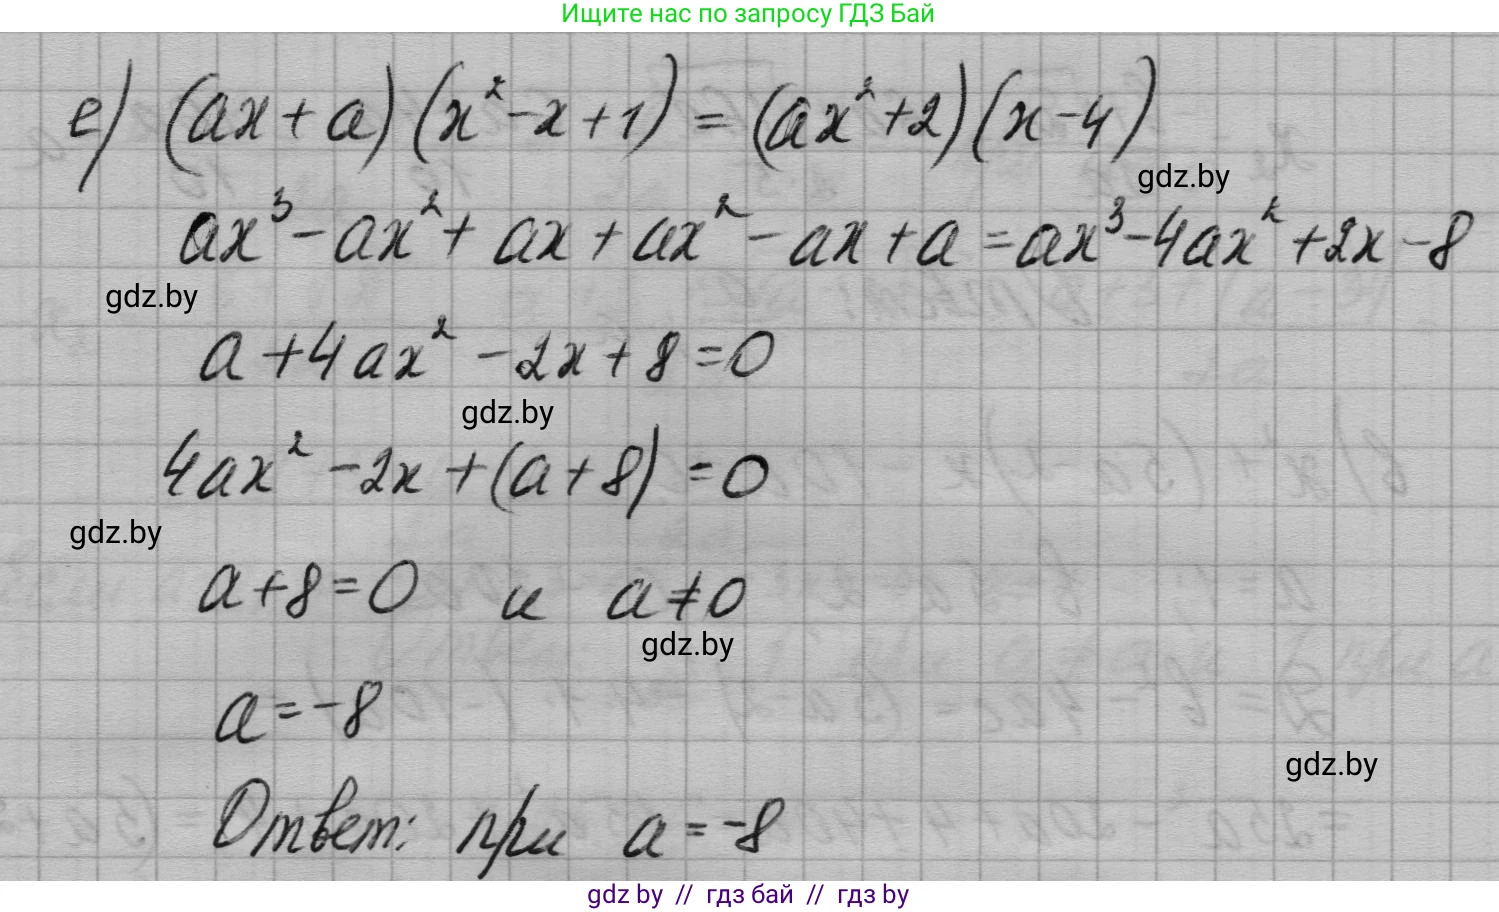 Ищите нас по запросу ГДЗ Бай
е) (ax + a)(x² - x + 1) = (ax² + 2)(x - 4)
gdz.by
ax³ - ax² + ax + ax² - ax + a = ax³ - 4ax² + 2x - 8
gdz.by
a + 4ax² - 2x + 8 = 0
gdz.by
4ax² - 2x + (a + 8) = 0
gdz.by
a + 8 = 0 и a ≠ 0
gdz.by
a = -8
gdz.by
Ответ: при a = -8
gdz by // гдз бай // гдз by